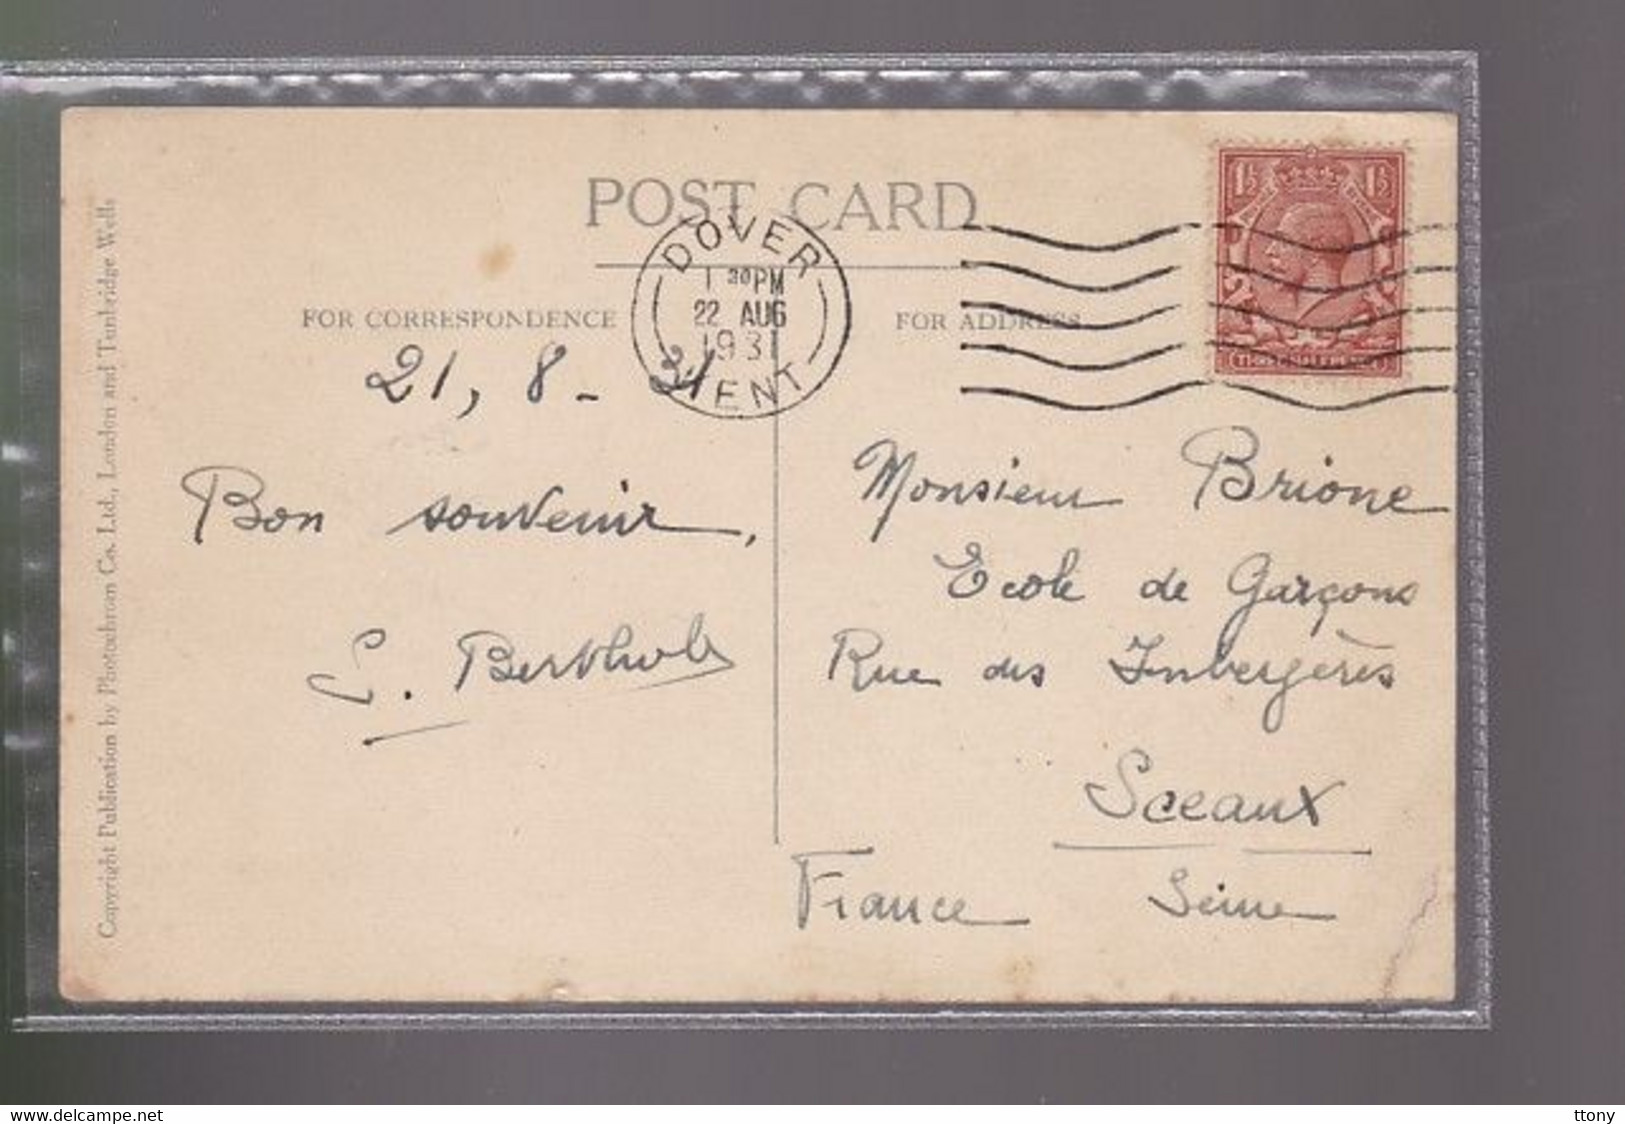 POST CARD
DOVER
1 30 PM
22 AUG
1931
KENT
1½ 1½
FOR CORRESPONDENCE
FOR ADDRESS
21, 8 - 31
Bon souvenir,
Monsieur Brione
Ecole de Garçons
Rue des Imbergères
Sceaux
Seine
France
Copyright Publication by Photochrom Co. Ltd., London and Tunbridge Wells
www.delcampe.net
ttony